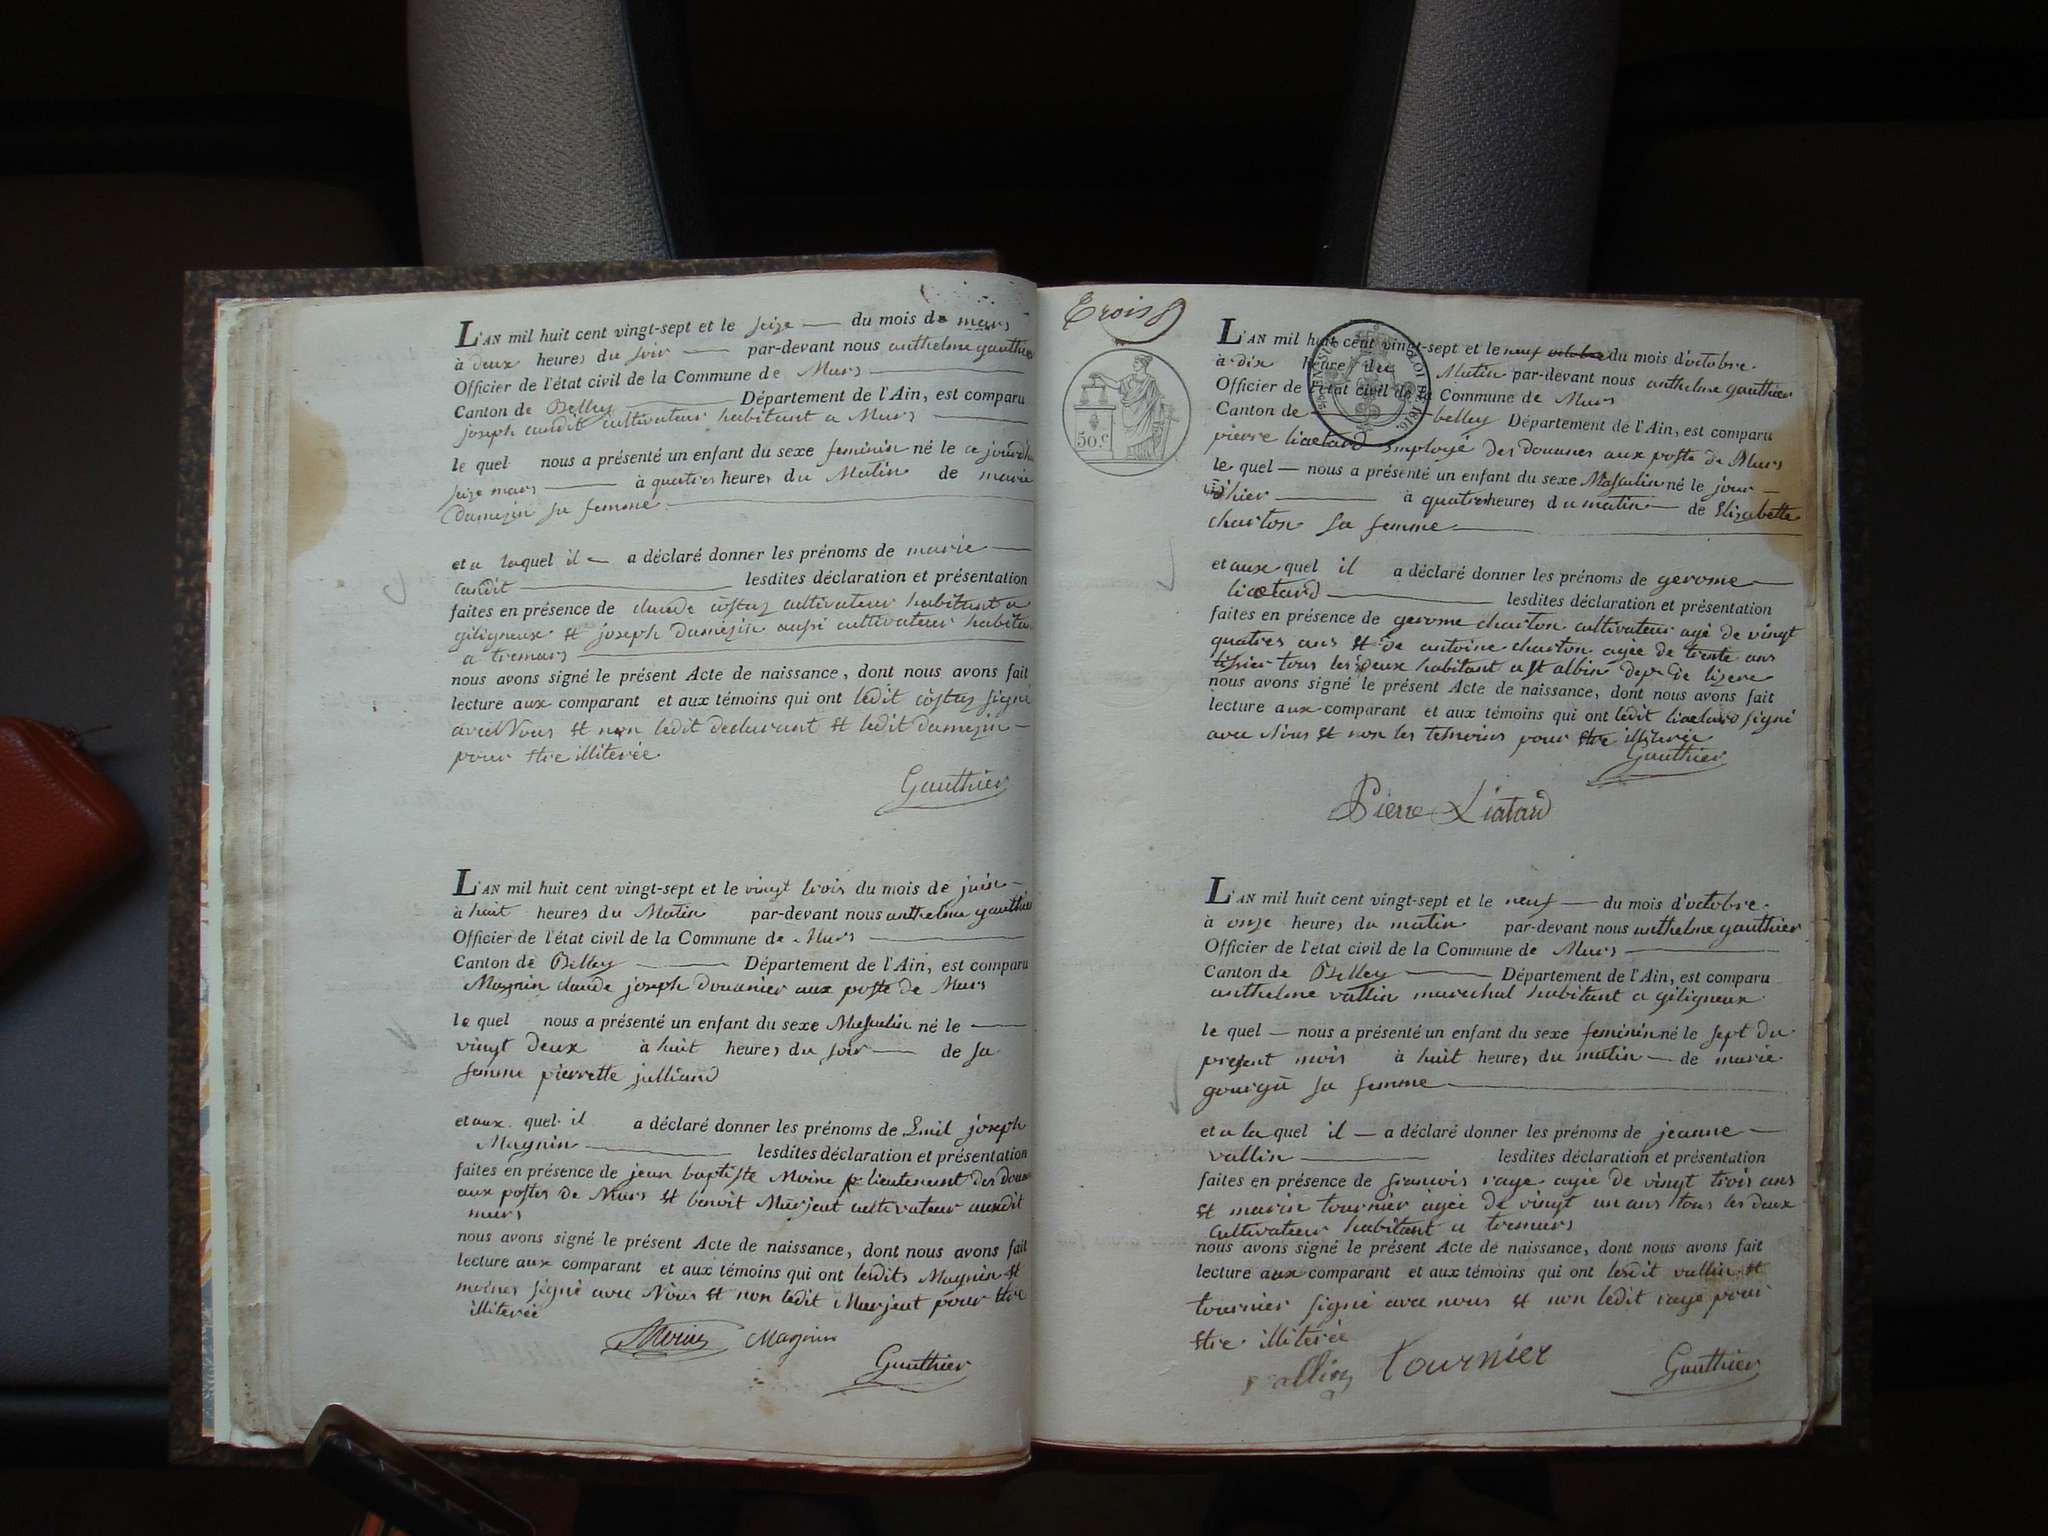 L'AN mil huit cent vingt-sept et le seize du mois de mars
à deux heures du soir par-devant nous anthelme gauthier
Officier de l'état civil de la Commune de Murs
Canton de Belley Département de l'Ain, est comparu
joseph candit cultivateur habitant a Murs
le quel nous a présenté un enfant du sexe feminin né le ce jourdhui
seize mars à quatres heures du Matin de marie
Damezin sa femme
et a laquel il a déclaré donner les prénoms de marie
candit lesdites déclaration et présentation
faites en présence de claude costaz cultivateur habitant a
giligneux et joseph Damezin aussi cultivateur habitan
a tremurs
nous avons signé le présent Acte de naissance, dont nous avons fait
lecture aux comparant et aux témoins qui ont ledit costaz signé
avec Nous et non ledit declarant et ledit damezin
pour etre illiterée
Gauthier
L'AN mil huit cent vingt-sept et le vingt trois du mois de juin
à huit heures du Matin par-devant nous anthelme gauthier
Officier de l'état civil de la Commune de Murs
Canton de Belley Département de l'Ain, est comparu
Magnin claude joseph douanier aux poste de Murs
le quel nous a présenté un enfant du sexe Masculin né le
vingt deux à huit heures du soir de sa
femme pierrette julliand
et aux quel il a déclaré donner les prénoms de Emil joseph
Magnin lesdites déclaration et présentation
faites en présence de jean baptiste Moine lieutenent des doua
aux postes de Murs et benoit Murjeut cultivateur auxdit
murs
nous avons signé le présent Acte de naissance, dont nous avons fait
lecture aux comparant et aux témoins qui ont lesdits Magnin et
moines signé avec Nous et non ledit Murjeut pour etre
illiterée
Magnin
Gauthier
Trois
50.c
L'AN mil huit cent vingt-sept et le neuf octobre du mois d'octobre
à dix heures du Matin par-devant nous anthelme gauthier
Officier de l'état civil de la Commune de Murs
Canton de belley Département de l'Ain, est comparu
pierre liaetard Employé des douanes aux poste de Murs
le quel nous a présenté un enfant du sexe Masculin né le jour
d'hier à quatres heures du matin de Elizabette
charton sa femme
et aux quel il a déclaré donner les prénoms de gerome
liaetard lesdites déclaration et présentation
faites en présence de gerome charton cultivateur agé de vingt
quatres ans et de antoine charton agée de trente ans
tisier tous les deux habitant a st albin depr de lizere
nous avons signé le présent Acte de naissance, dont nous avons fait
lecture aux comparant et aux témoins qui ont ledit liaetard signé
avec Nous et non les temoins pour etre illiterée
Gauthier
Pierre Liatard
L'AN mil huit cent vingt-sept et le neuf du mois d'octobre
à onze heures du matin par-devant nous anthelme gauthier
Officier de l'état civil de la Commune de Murs
Canton de Belley Département de l'Ain, est comparu
anthelme vallin marechal habitant a giligneux
le quel nous a présenté un enfant du sexe feminin né le sept du
present mois à huit heures du matin de marie
gourgu sa femme
et a la quel il a déclaré donner les prénoms de jeanne
vallin lesdites déclaration et présentation
faites en présence de francois raye agée de vingt trois ans
et marin tournier agée de vingt un ans tous les deux
cultivateur habitant a tremurs
nous avons signé le présent Acte de naissance, dont nous avons fait
lecture aux comparant et aux témoins qui ont lesdit vallin et
tournier signé avec nous et non ledit raye pour
etre illiterée
vallin tournier
Gauthier